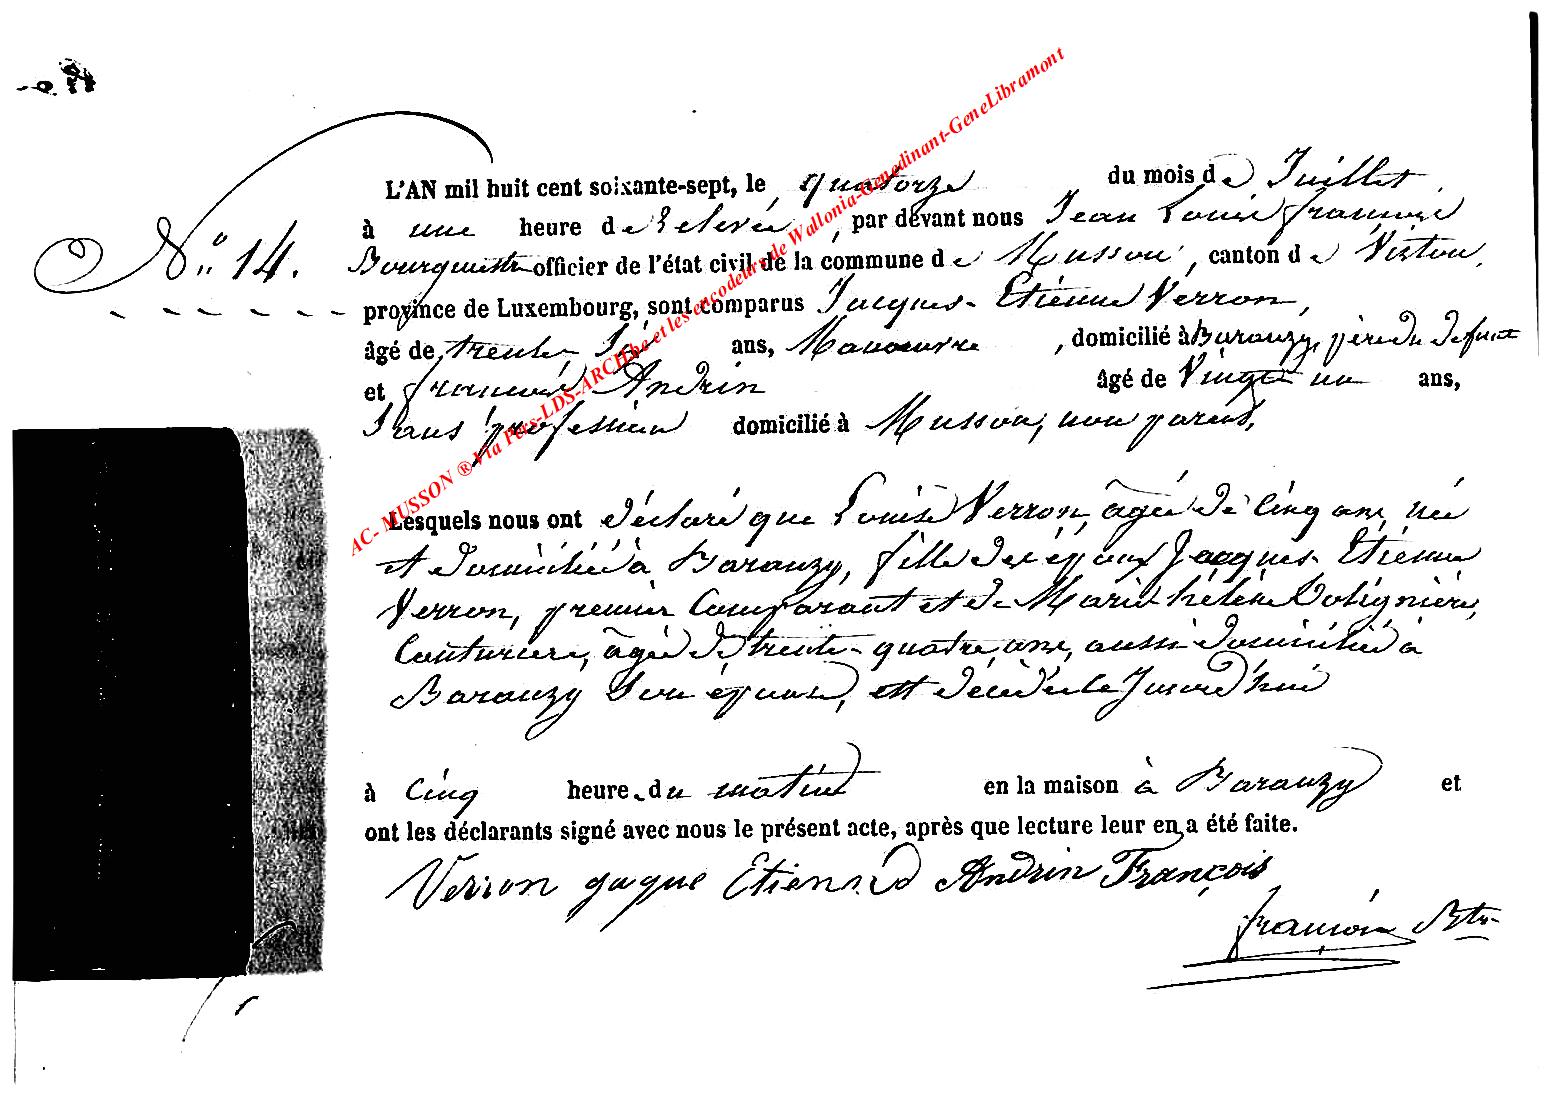 L'AN mil huit cent soixante-sept, le quatorze du mois de Juillet,
à une heure de Relevée, par devant nous Jean Louis François
N° 14. Bourgmestre officier de l'état civil de la commune de Musson, canton de Virton,
province de Luxembourg, sont comparus Jacques-Etienne Verron,
âgé de trente ans, Manoeuvre, domicilié à Baranzy, père du défunt
et François Andrin âgé de Vingt un ans,
Sans profession domicilié à Musson, non parent,
Lesquels nous ont déclaré que Louise Verron, âgée de Cinq ans, née
et domiciliée à Baranzy, fille des époux Jacques-Etienne
Verron, premier Comparant et de Marie hélène
Couturière, âgée de trente-quatre ans, aussi domiciliée à
Baranzy Son épouse, est décédée le Jourd'hui
à Cinq heure du matin en la maison à Baranzy et
ont les déclarants signé avec nous le présent acte, après que lecture leur en a été faite.
Verron gaque Etienne Andrin François
François Btre
AC- MUSSON ® Via Pers-LDS-ARCHbe et les encodeurs de Wallonia-Genedinant-GeneLibramont